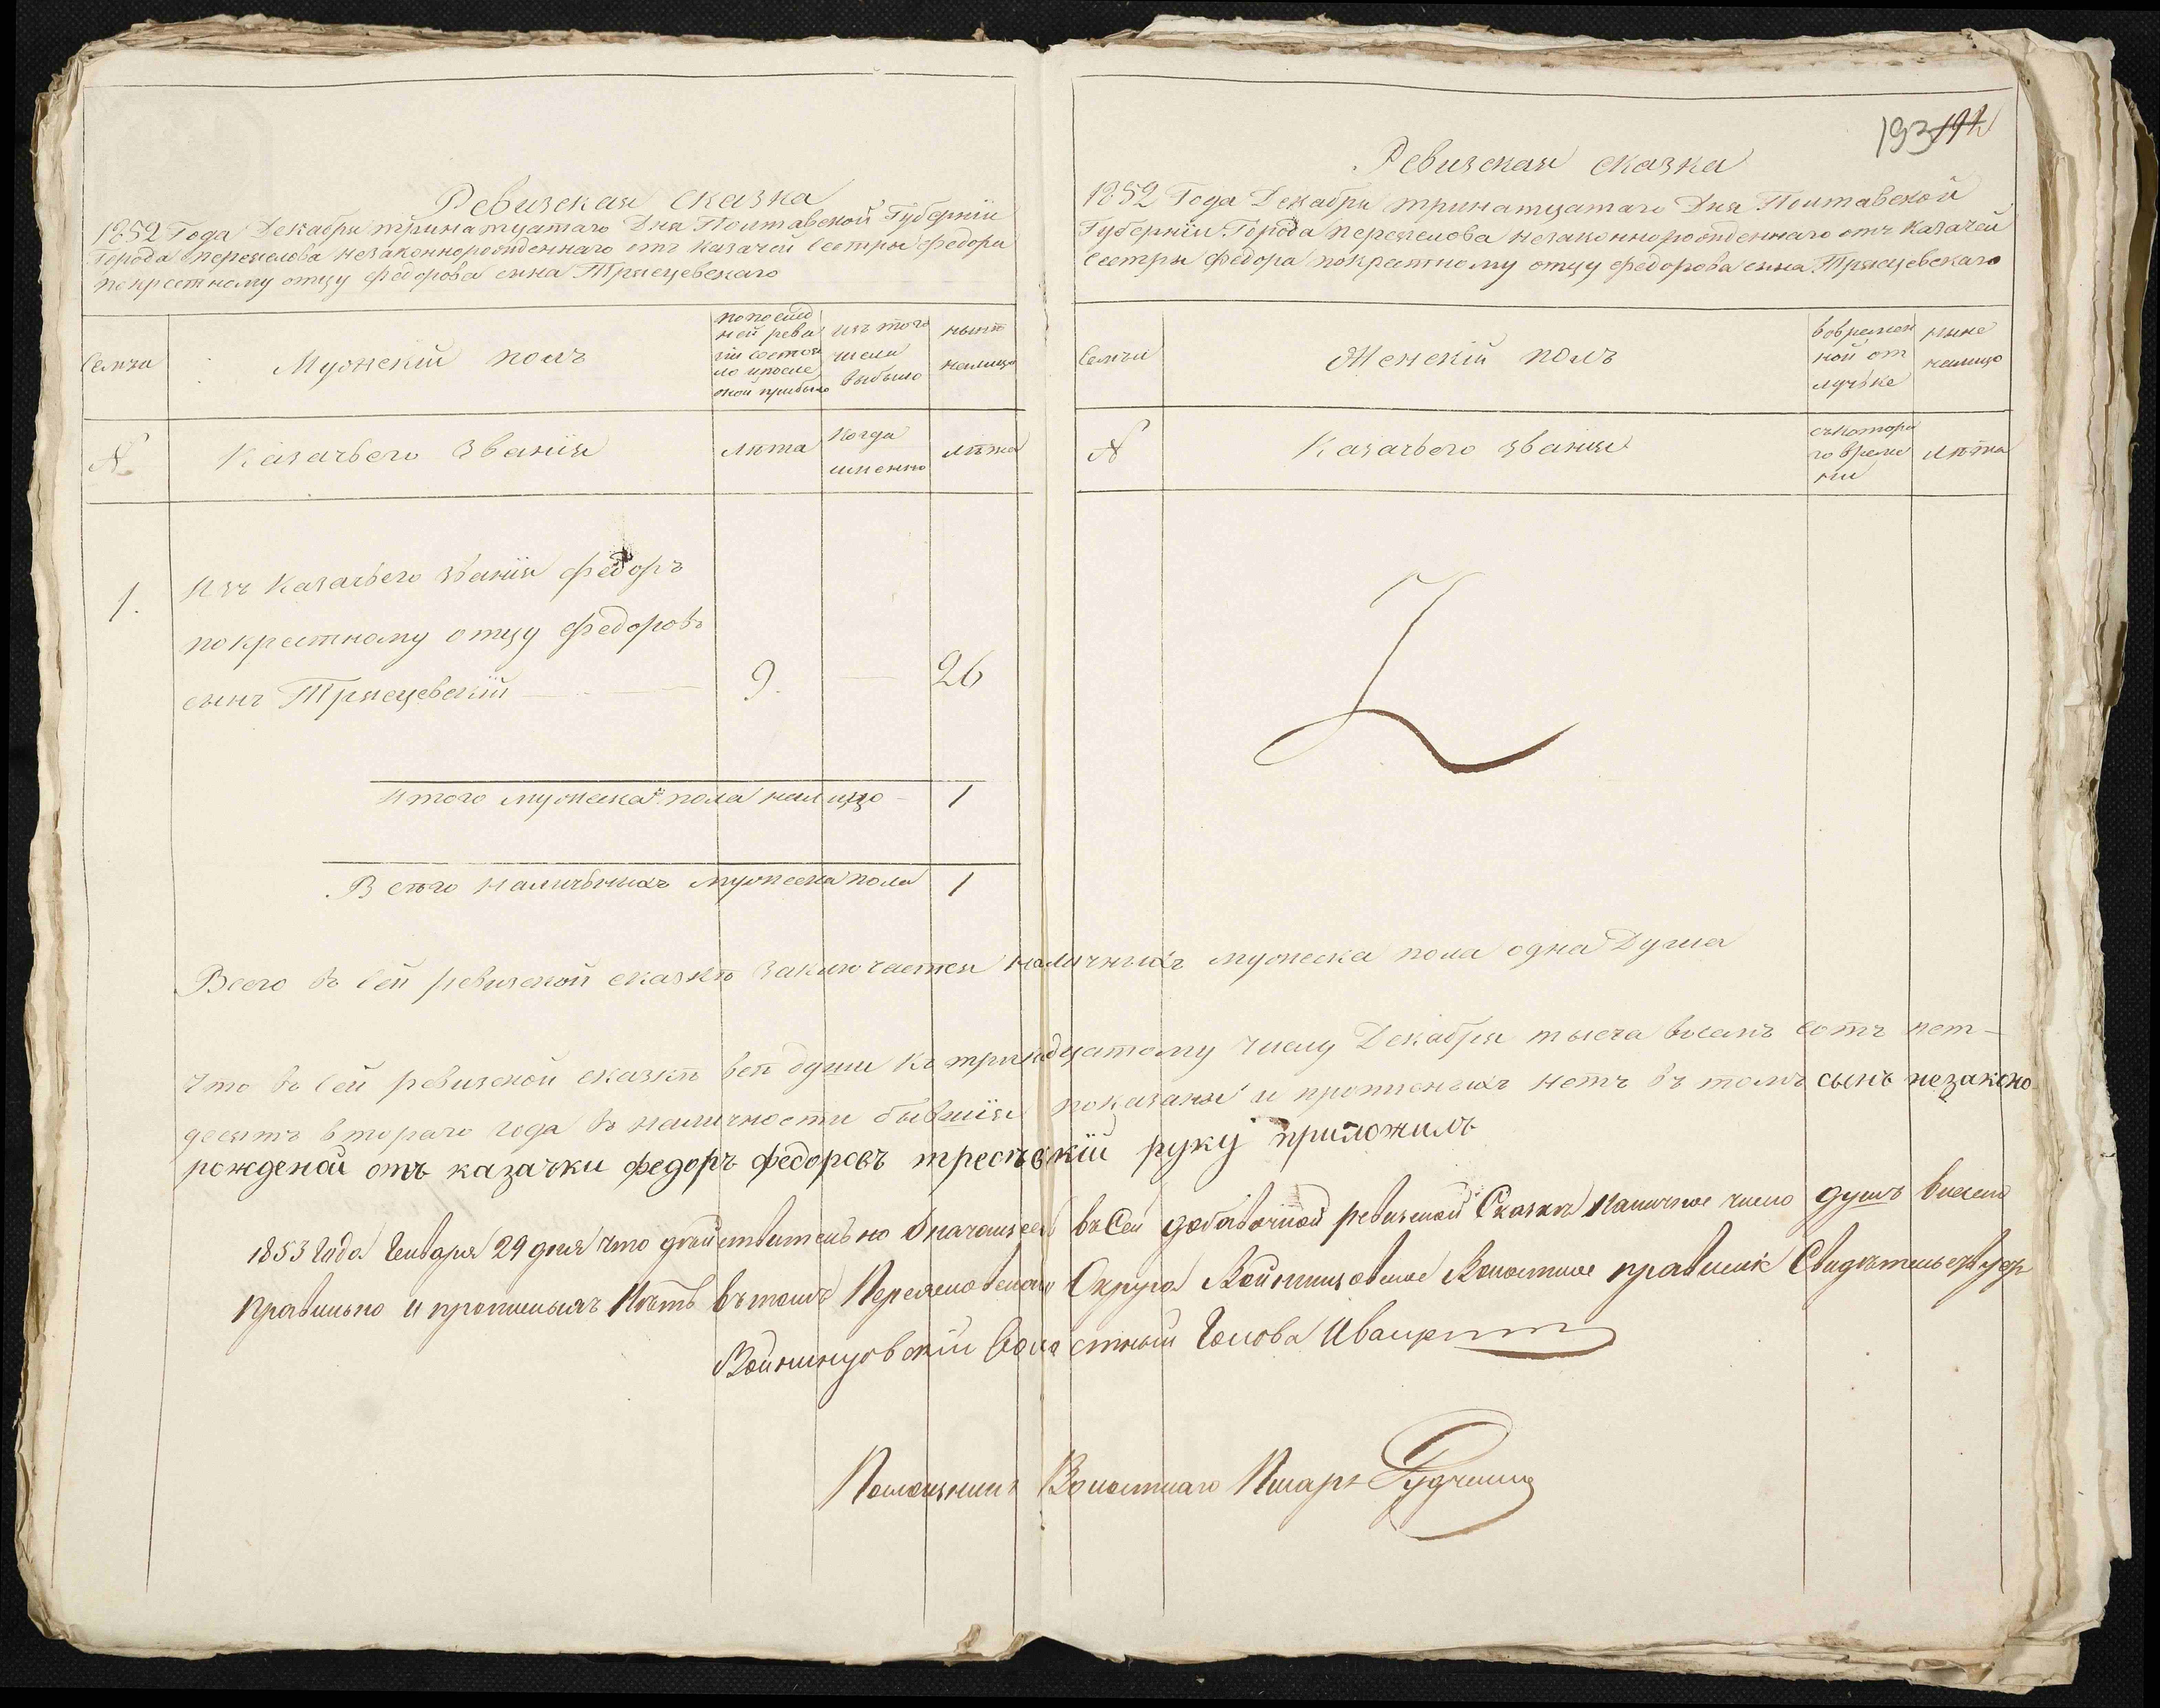 Ревизская сказка
1852 Года Декабря тринатцатаго Дня Полтавской Губернїи
Города переяслова незаконнорожденнаго отъ казачей Сестры федора
покрестному отцу федорова сына Трясцевскаго
Семьи
Мужскїй полъ
попослед
ней реви
зїи состоя
ло ипосле
оной прибыло
изъ того
числа
выбыло
ныне
налицо
№
Казачьего званїя
Лѣта
Когда
именно
лѣта
1.
Изъ Казачьего званїя федоръ
покрестному отцу федоровъ
сынъ Трясцевскїй
9.
26
Итого мужеска пола налицо
1
Всего наличныхъ мужеска пола
1
193 192
Ревизская сказка
1852 Года Декабря тринатцатаго Дня Полтавской
Губернїи Города переяслова незаконнорожденнаго отъ казачей
Сестры федора покрестному отцу федорова сына Трясцевскаго
Семьи
Женскїй полъ
вовремен
ной от
лучьке
ныне
налицо
№
Казачьего звания
съкотора
го време
ни
лѣта
Всего въ сей ревизской сказкѣ заключается наличныхъ мужеска пола одна Душа
Что въ сей ревизской сказкѣ всѣ души къ тринадцатому числу Декабря тысеча восемъ сотъ пет-
десятъ втораго года въ наличности бывшїя показаны и прописныхъ нетъ въ томъ сынъ незаконо
рожденой отъ казачки федоръ федоровъ тресчевкїй руку приложилъ
1853 Года Генваря 29 дня что действительно Означаеся въ Сей добавочной ревизской Сказкѣ Наличное число душъ внесено
правильно и прописныхъ Нѣтъ въ томъ Переяславскаго Округа Войтницовское Волостное правление
Войнинцовскїй Волостный Голова
Помощникъ Волостнаго Писаря